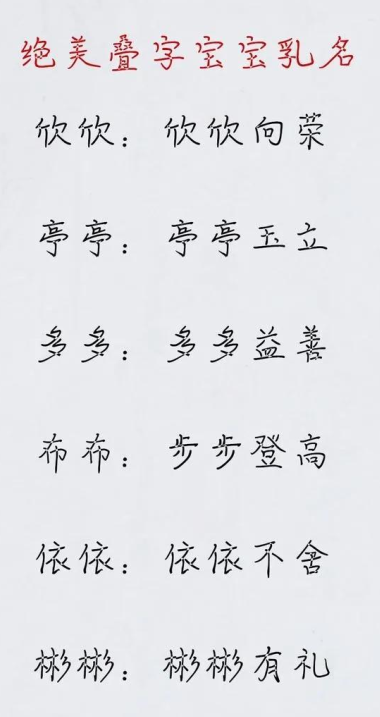 绝美叠字宝宝乳名
欣欣：欣欣向荣
亭亭：亭亭玉立
多多：多多益善
布布：步步登高
依依：依依不舍
彬彬：彬彬有礼